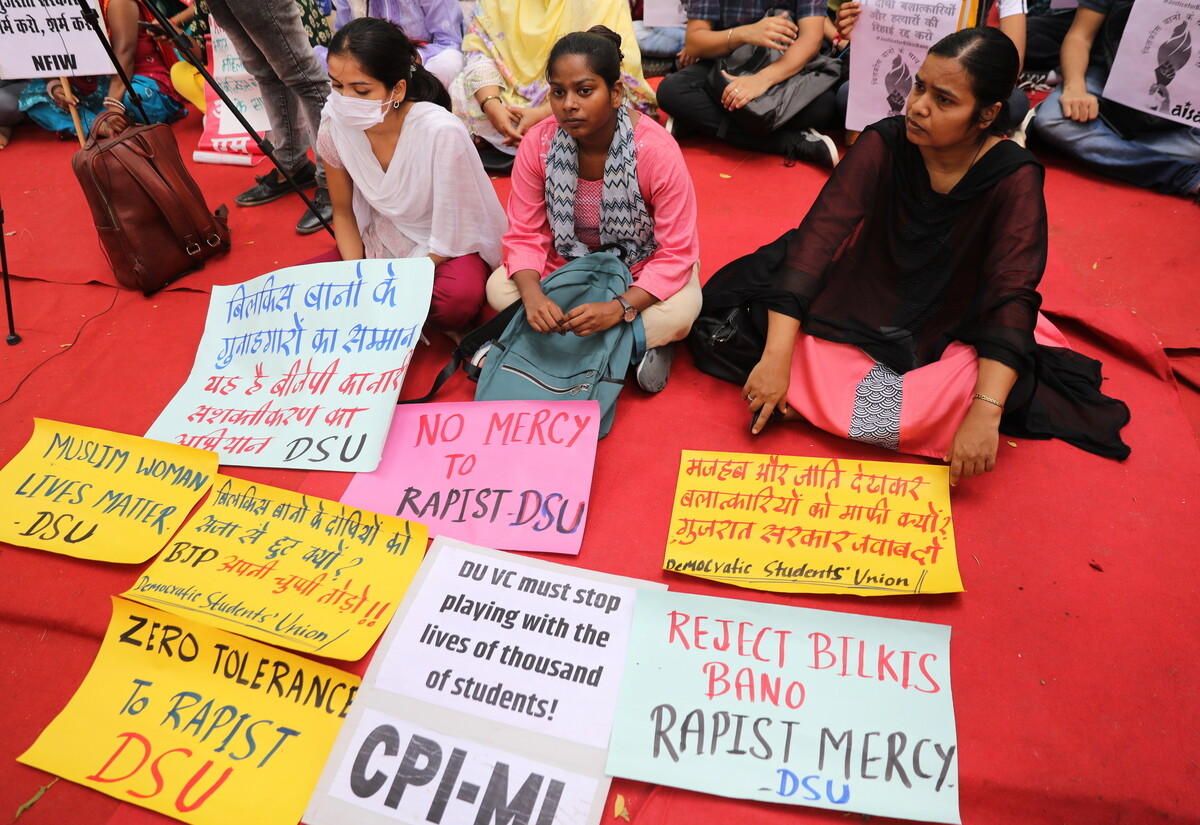 शर्म करो, शर्म करो
NFIW
दोषी बलात्कारियों
और हत्यारों की
रिहाई रद्द करो
बिलकिस बानो के
गुनाहगारों का सम्मान
यह है बीजेपी का नारी
सशक्तीकरण का
अभियान DSU
MUSLIM WOMAN
LIVES MATTER
-DSU
NO MERCY
TO
RAPIST-DSU
बिलकिस बानो के दोषियों को
सजा से छूट क्यों?
BJP अपनी चुप्पी तोड़ो!!
Democratic Students' Union/
मजहब और जाति देखकर
बलात्कारियों को माफी क्यों?
गुजरात सरकार जवाब दो
Democratic Students' Union//
ZERO TOLERANCE
To RAPIST
DSU
DU VC must stop
playing with the
lives of thousand
of students!
CPI-ML
REJECT BILKIS
BANO
RAPIST MERCY.
-DSU